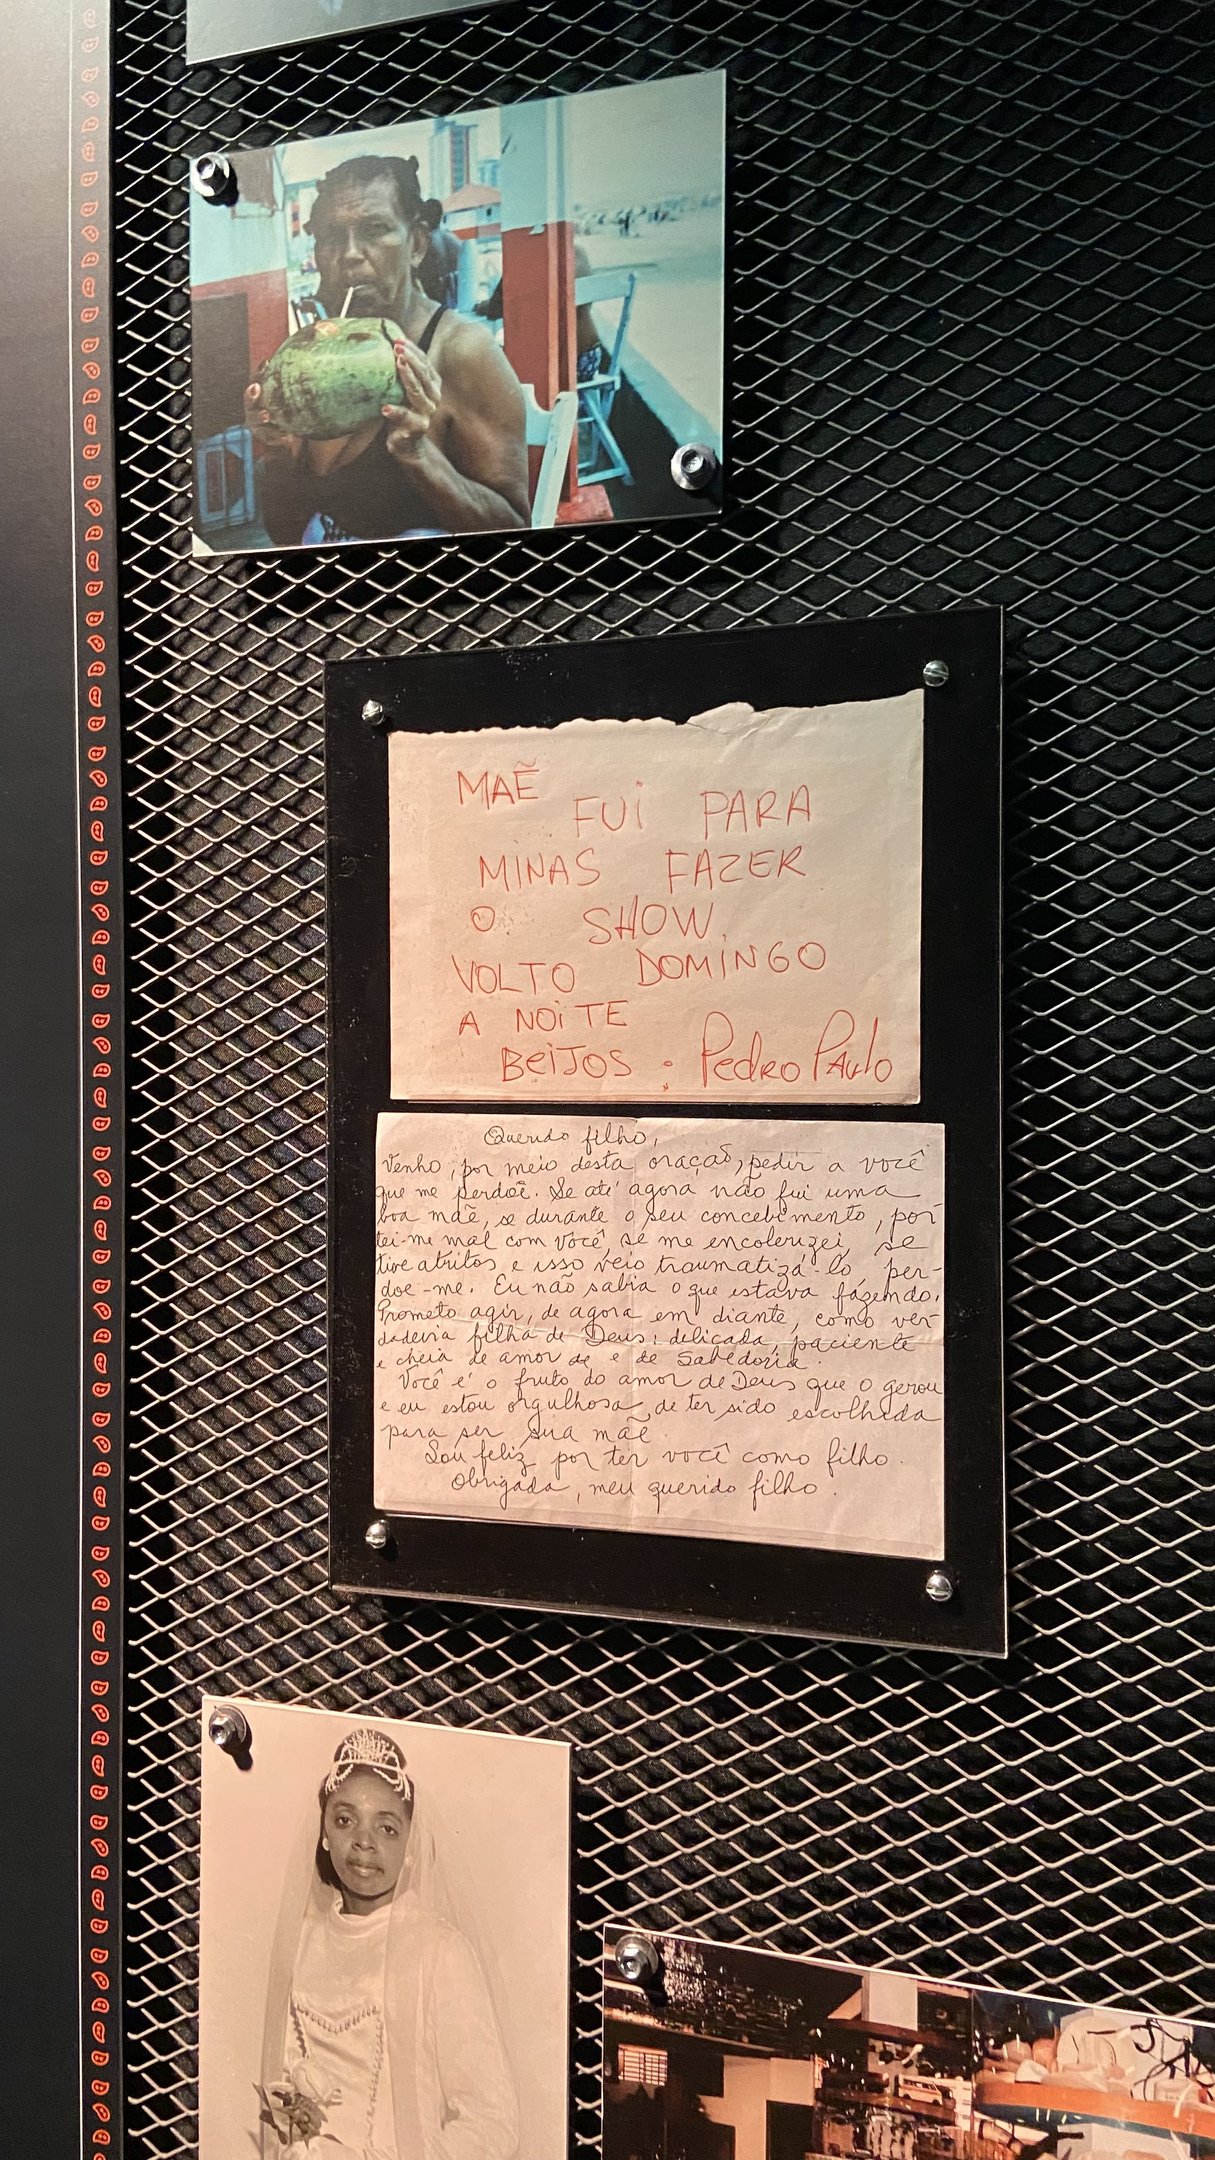 MAẼ
FUi PARA
MINAS FAZER
O SHOW.
VOLTO DOMiNGO
A NOiTE
BEiJOS. PEDRO PAULO
Querido filho,
Venho, por meio desta oração, pedir a você
que me perdoê. Se até agora não fui uma
boa mãe, se durante o seu concebimento, por
tei-me mal com você se me encolerizei, se
tive atritos e isso veio traumatizá-lo, per-
doe-me. Eu não sabia o que estava fazendo.
Prometo agir, de agora em diante, como ver
dadeira filha de Deus: delicada, paciente
e cheia de amor de e de Sabedoria.
Você é o fruto do amor de Deus que o gerou
e eu estou orgulhosa, de ter sido escolhida
para ser sua mãe.
Sou feliz por ter você como filho.
Obrigada, meu querido filho.